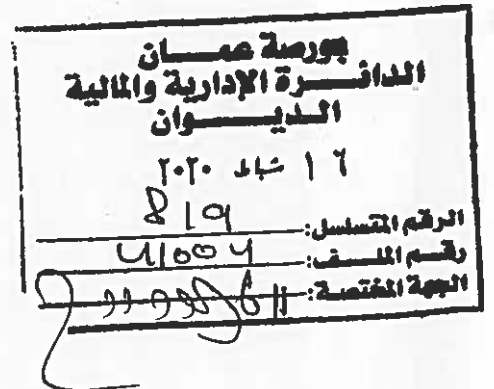 بورصة عمان
الدائرة الإدارية والمالية
الديوان
١٦ شباط ٢٠٢٠
الرقم المتسلسل: 819
رقم الملف: 41004
الجهة المختصة: